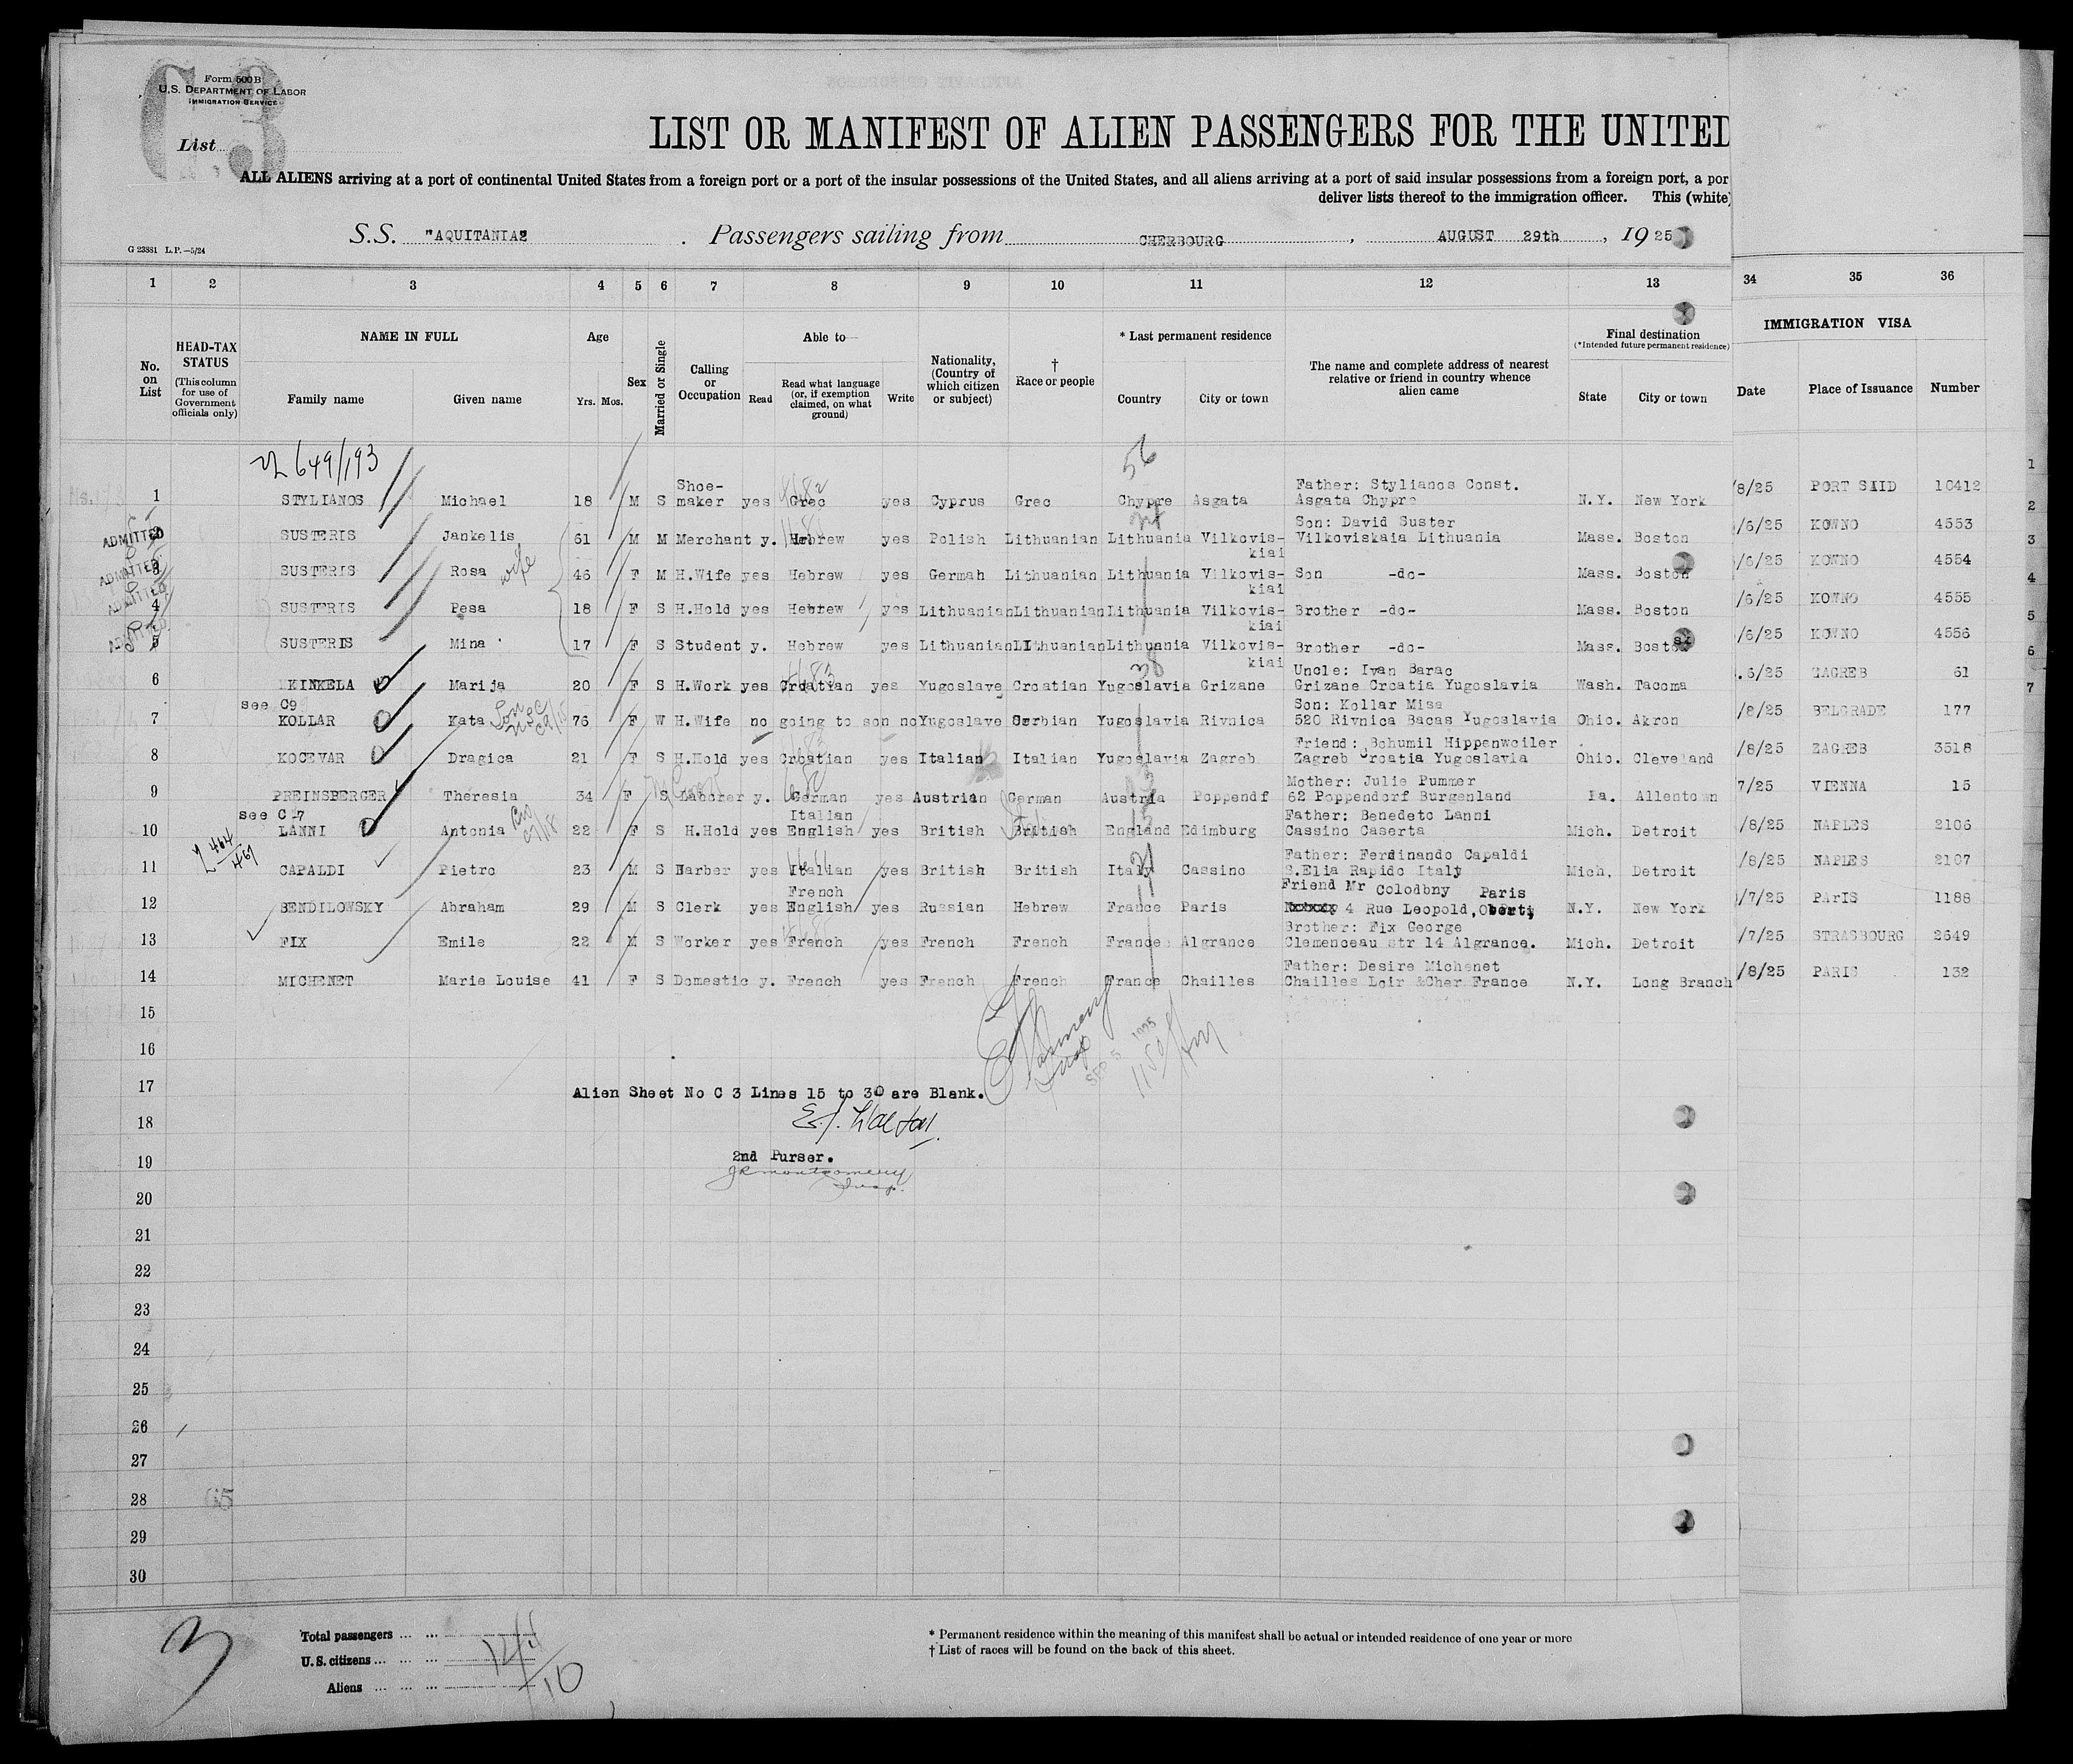 Form 500 B
U.S. DEPARTMENT OF LABOR
IMMIGRATION SERVICE
C.3
List
LIST OR MANIFEST OF ALIEN PASSENGERS FOR THE UNITED
ALL ALIENS arriving at a port of continental United States from a foreign port or a port of the insular possessions of the United States, and all aliens arriving at a port of said insular possessions from a foreign port, a por
deliver lists thereof to the immigration officer. This (white)
S.S. "AQUITANIA2 . Passengers sailing from CHERBOURG , AUGUST 29th , 1925
G 23881 L.P.—5/24
1 2 3 4 5 6 7 8 9 10 11 12 13 34 35 36
No. on List
HEAD-TAX STATUS (This column for use of Government officials only)
NAME IN FULL
Family name Given name
Age
Yrs. Mos.
Sex
Married or Single
Calling or Occupation
Able to
Read Read what language (or, if exemption claimed, on what ground) Write
Nationality, (Country of which citizen or subject)
† Race or people
* Last permanent residence
Country City or town
The name and complete address of nearest relative or friend in country whence alien came
Final destination
(*Intended future permanent residence)
State City or town
IMMIGRATION VISA
Date Place of Issuance Number
649/193 56
Shoe- 4682 Father: Stylianos Const.
1 STYLIANOS Michael 18 M S maker yes Grec yes Cyprus Grec Chypre Asgata Asgata Chypre N.Y. New York /8/25 PORT SAID 10412
Son: David Suster
ADMITTED 2 SUSTERIS Jankelis 61 M M Merchant y. Hebrew yes Polish Lithuanian Lithuania Vilkovis-kiai Vilkoviskaia Lithuania Mass. Boston /6/25 KOWNO 4553
ADMITTED 3 SUSTERIS Rosa wife 46 F M H.Wife yes Hebrew yes German Lithuanian Lithuania Vilkovis-kiai Son -do- Mass. Boston /6/25 KOWNO 4554
ADMITTED 4 SUSTERIS Pesa 18 F S H.Hold yes Hebrew yes Lithuanian Lithuanian Lithuania Vilkovis-kiai Brother -do- Mass. Boston /6/25 KOWNO 4555
ADMITTED 5 SUSTERIS Mina 17 F S Student y. Hebrew yes Lithuanian LIthuanian Lithuania Vilkovis-kiai Brother -do- Mass. Boston /6/25 KOWNO 4556
4683 38 Uncle: Ivan Barac
6 KINKELA Marija 20 F S H.Work yes Croatian yes Yugoslave Croatian Yugoslavia Grizane Grizane Croatia Yugoslavia Wash. Tacoma .6/25 ZAGREB 61
see C9 Son: Kollar Misa
7 KOLLAR Kata 76 F W H.Wife no going to son no Yugoslave Serbian Yugoslavia Rivnica 520 Rivnica Bacas Yugoslavia Ohio. Akron /8/25 BELGRADE 177
Friend: Bohumil Hippenweiler
8 KOCEVAR Dragica 21 F S H.Hold yes Croatian yes Italian Italian Yugoslavia Zagreb Zagreb Croatia Yugoslavia Ohio. Cleveland /8/25 ZAGREB 3518
Mother: Julie Pummer
9 PREINSBERGER Theresia 34 F S Laborer y. German yes Austrian German Austria Poppendf 62 Poppendorf Burgenland Pa. Allentown 7/25 VIENNA 15
see C 7 Italian Father: Benedeto Lanni
10 LANNI Antonia 22 F S H.Hold yes English yes British British England Edimburg Cassino Caserta Mich. Detroit /8/25 NAPLES 2106
464
467
Father: Ferdinando Capaldi
11 CAPALDI Pietro 23 M S Barber yes Italian yes British British Italy Cassino S.Elia Rapido Italy Mich, Detroit /8/25 NAPLES 2107
French Friend Mr Colodbny Paris
12 BENDILOWSKY Abraham 29 M S Clerk yes English yes Russian Hebrew France Paris 4 Rue Leopold, N.Y. New York /7/25 PArIS 1188
Brother: Fix George
13 FIX Emile 22 M S Worker yes French yes French French France Algrance Clemenceau str 14 Algrance. Mich. Detroit /7/25 STRASBOURG 2649
Father: Desire Michenet
14 MICHENET Marie Louise 41 F S Domestic y. French yes French French France Chailles Chailles Loir &Cher France N.Y. Long Branch /8/25 PARIS 132
15
16
SEP 5 1925
17 Alien Sheet No C 3 Lines 15 to 30 are Blank.
18
19 2nd Purser.
JR Montgomery
Insp.
20
21
22
23
24
25
26
27
28 65
29
30
1
2
3
4
5
6
7
3
Total passengers ... ...
U.S. citizens ... ... ...
Aliens ... ... ...
14
10
* Permanent residence within the meaning of this manifest shall be actual or intended residence of one year or more
† List of races will be found on the back of this sheet.